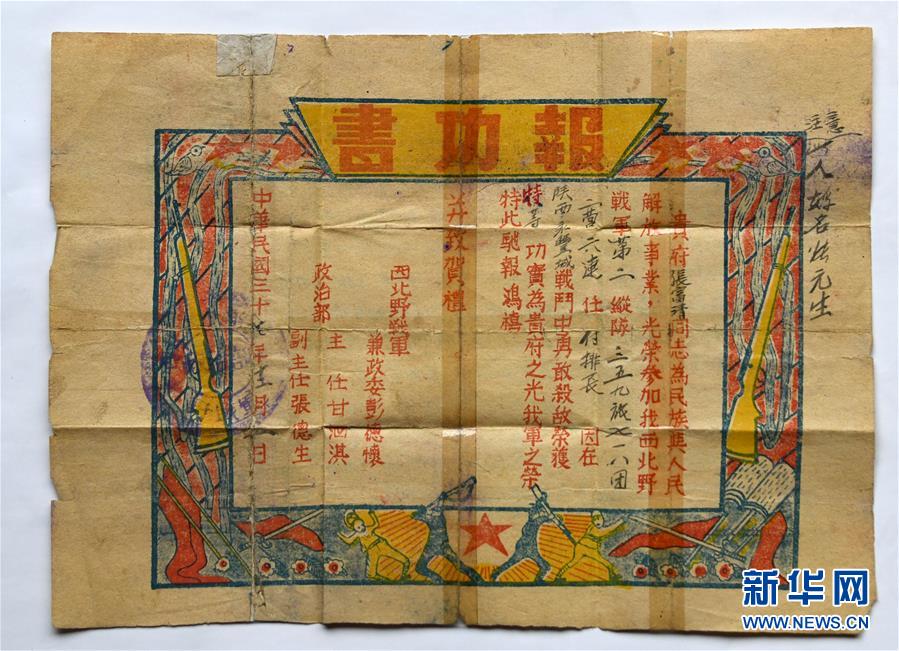 報功書
貴府張富清同志為民族與人民
解放事業，光榮參加我西北野
戰軍第二縱隊三五九旅七一八团
二营六連任付排長 因在
陕西永豐城戰鬥中勇敢殺敵榮獲
特等功實為貴府之光我軍之榮
特此馳報鴻禧
并致賀禮
西北野戰軍
兼政委彭德懷
政治部
主任甘泗淇
副主任張德生
中華民國三十七年十二月日
注意
人姓名元生
新华网
WWW.NEWS.CN